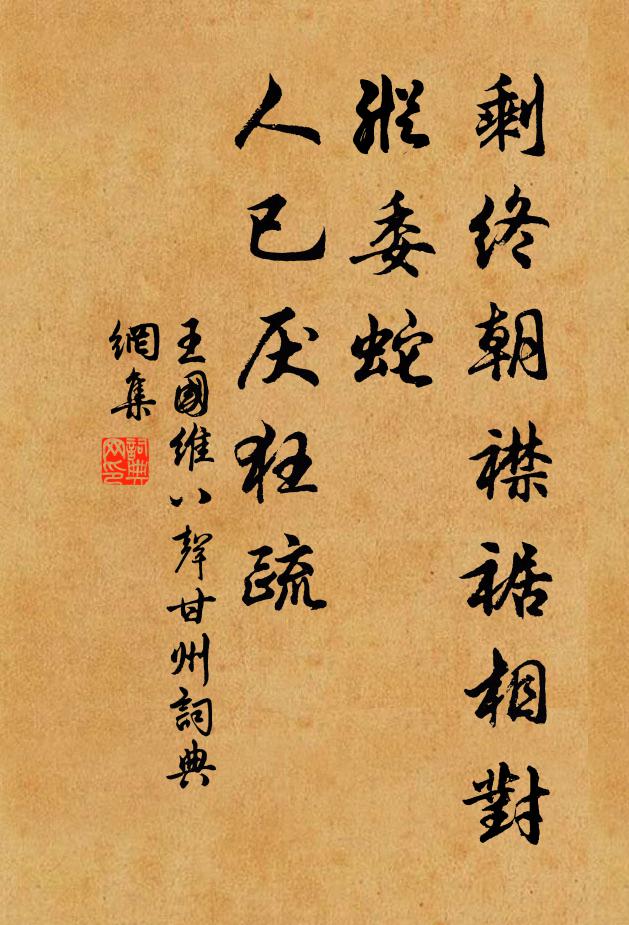 剩终朝襟裾相對
縱委蛇
人已厌狂疏
王國維八聲甘州詞典
網集
詞典网印